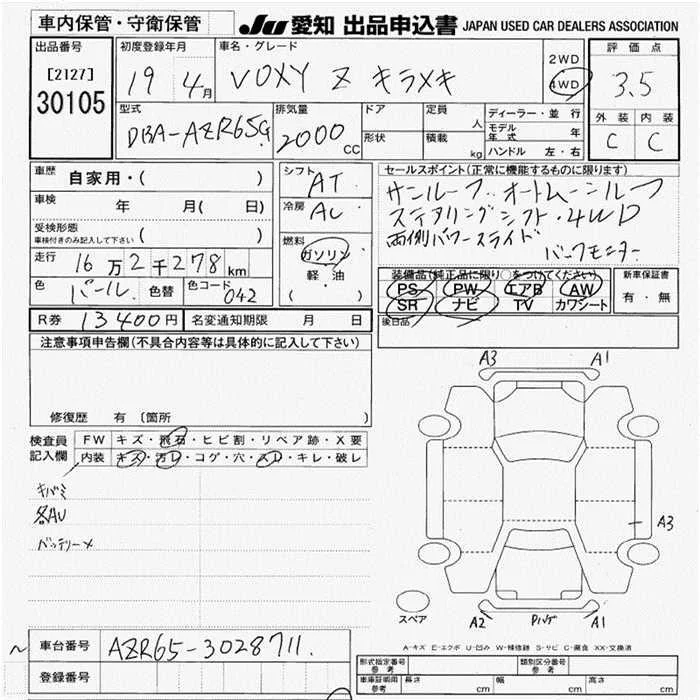 車内保管・守衛保管 JU 愛知 出品申込書 JAPAN USED CAR DEALERS ASSOCIATION
出品番号 初度登録年月 車名・グレード 評価点
[2127] 19 4月 VOXY Z キラメキ 2WD 4WD 3.5
30105
型式 排気量 ドア 定員 人 ディーラー・並行 外装 内装
DBA-AZR65G 2000cc 形状 積載 kg モデル年式 年 C C
ハンドル 左・右
車歴 自家用・( ) シフト AT セールスポイント(正常に機能するものに限ります)
車検 年 月( 日) 冷房 AC サンルーフ オートムーンルーフ
受検形態 ステアリングシフト・4WD
車検付きのみ記入して下さい ( ) 燃料 両側パワースライド
走行 16万2千278km ガソリン バックモニター
色 パール 色替 色コード 042 軽・油 ( )
装備品(純正品に限り○をつけてください) 新車保証書
PS PW エアB AW 有・無
SR ナビ TV カワシート
R券 13400円 名変通知期限 月 日 後日品
注意事項申告欄(不具合内容等は具体的に記入して下さい)
A3 A1
修復歴 有 〔箇所 〕
検査員 FW キズ・飛石・ヒビ割・リペア跡・X要
記入欄 内装 キズ・汚レ・コゲ・穴・スレ・キレ・破レ
キバミ
各AU
バッテリーメ
A3
スペア A2 Pハゲ A1
車台番号 AZR65-3028711
A-キズ E-エクボ U-凹み W-補修跡 S-サビ C-腐食 XX-交換済
登録番号 形式指定番号 参考 類別区分番号 参考
車庫証明用 参考 長さ cm 幅 cm 高さ cm